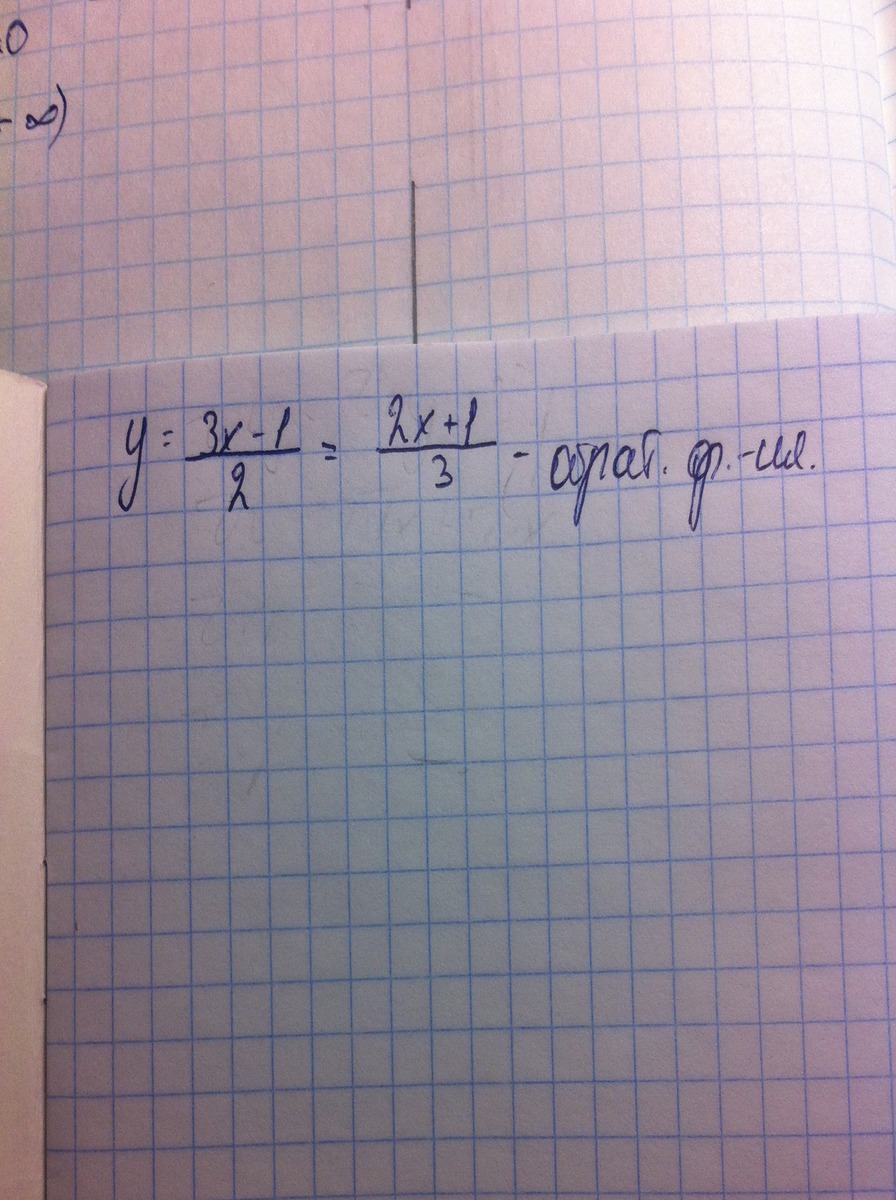 0
- ∞)
y = 3x-1/2 = 2x+1/3 - обрат. ф.-ия.